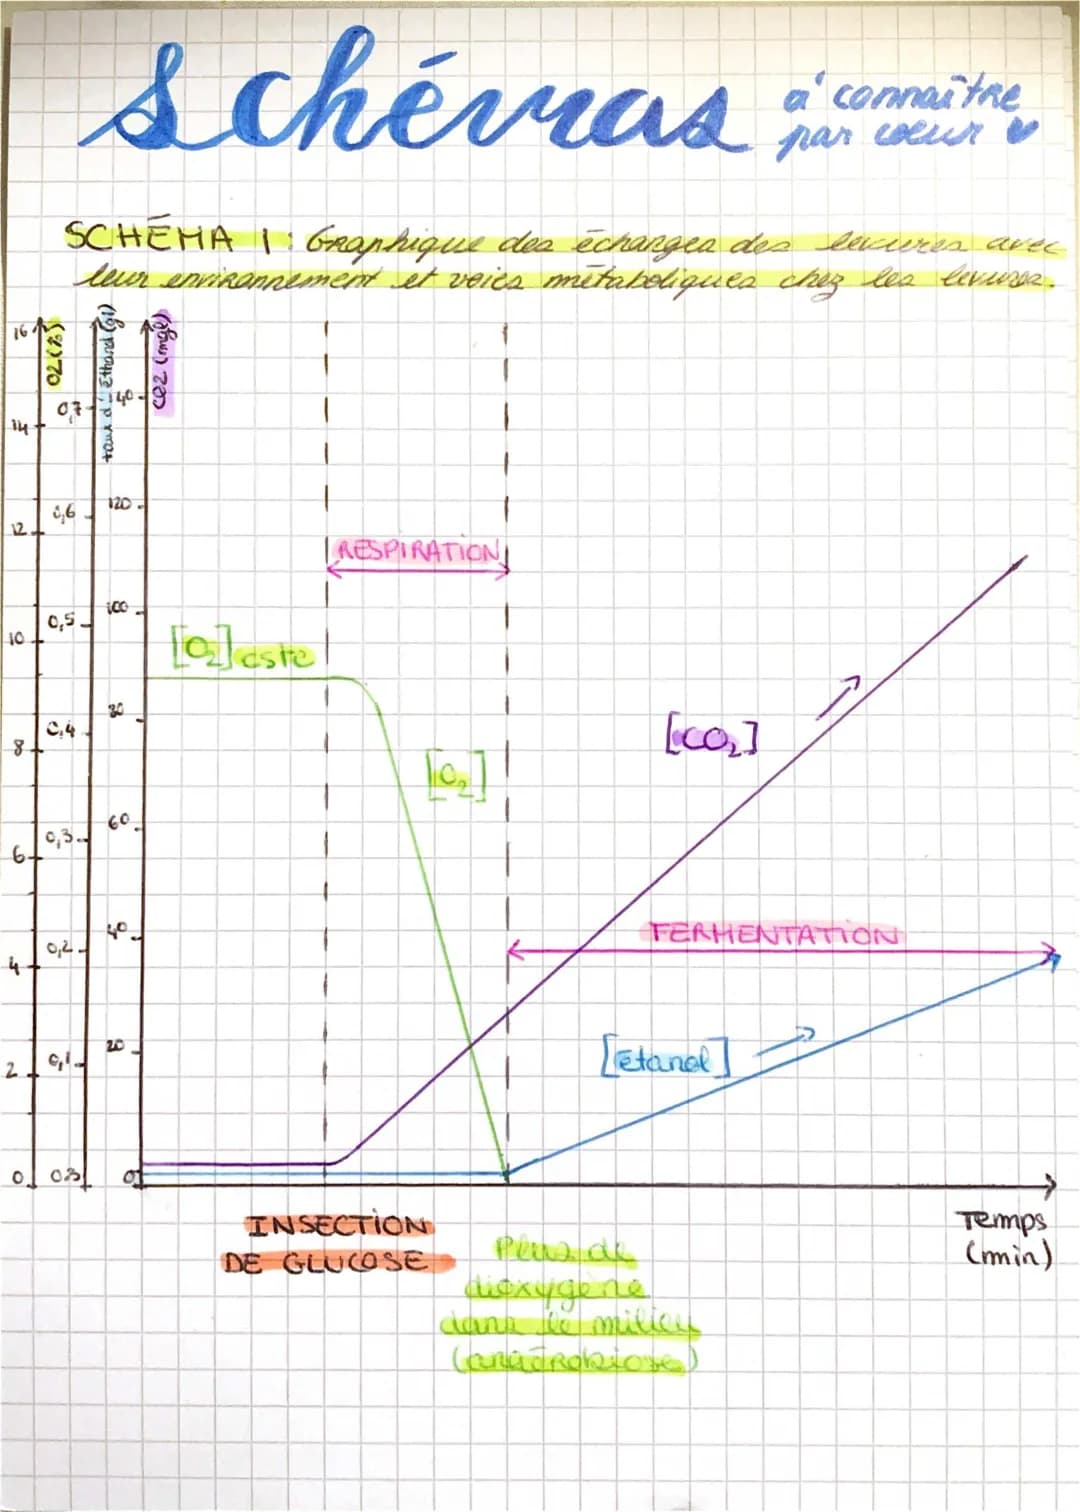 Schémas
à connaître
par coeur
SCHÉMA 1: Graphique des échanges des levures avec
leur environnement et voies métaboliques chez les levures.
O2(%)
taux d'Ethanol (g/l)
CO2 (mgl)
16
14
12
10
8
6
4
2
0
0,7
0,6
0,5
0,4
0,3
0,2
0,1
0.3
40
120
100
80
60
40
20
0
RESPIRATION
[O2] cste
[O2]
[CO2]
FERMENTATION
[Etanol]
INSECTION
DE GLUCOSE
Plus de
dioxygène
dans le milieu
(anaérobiose)
Temps
(min)